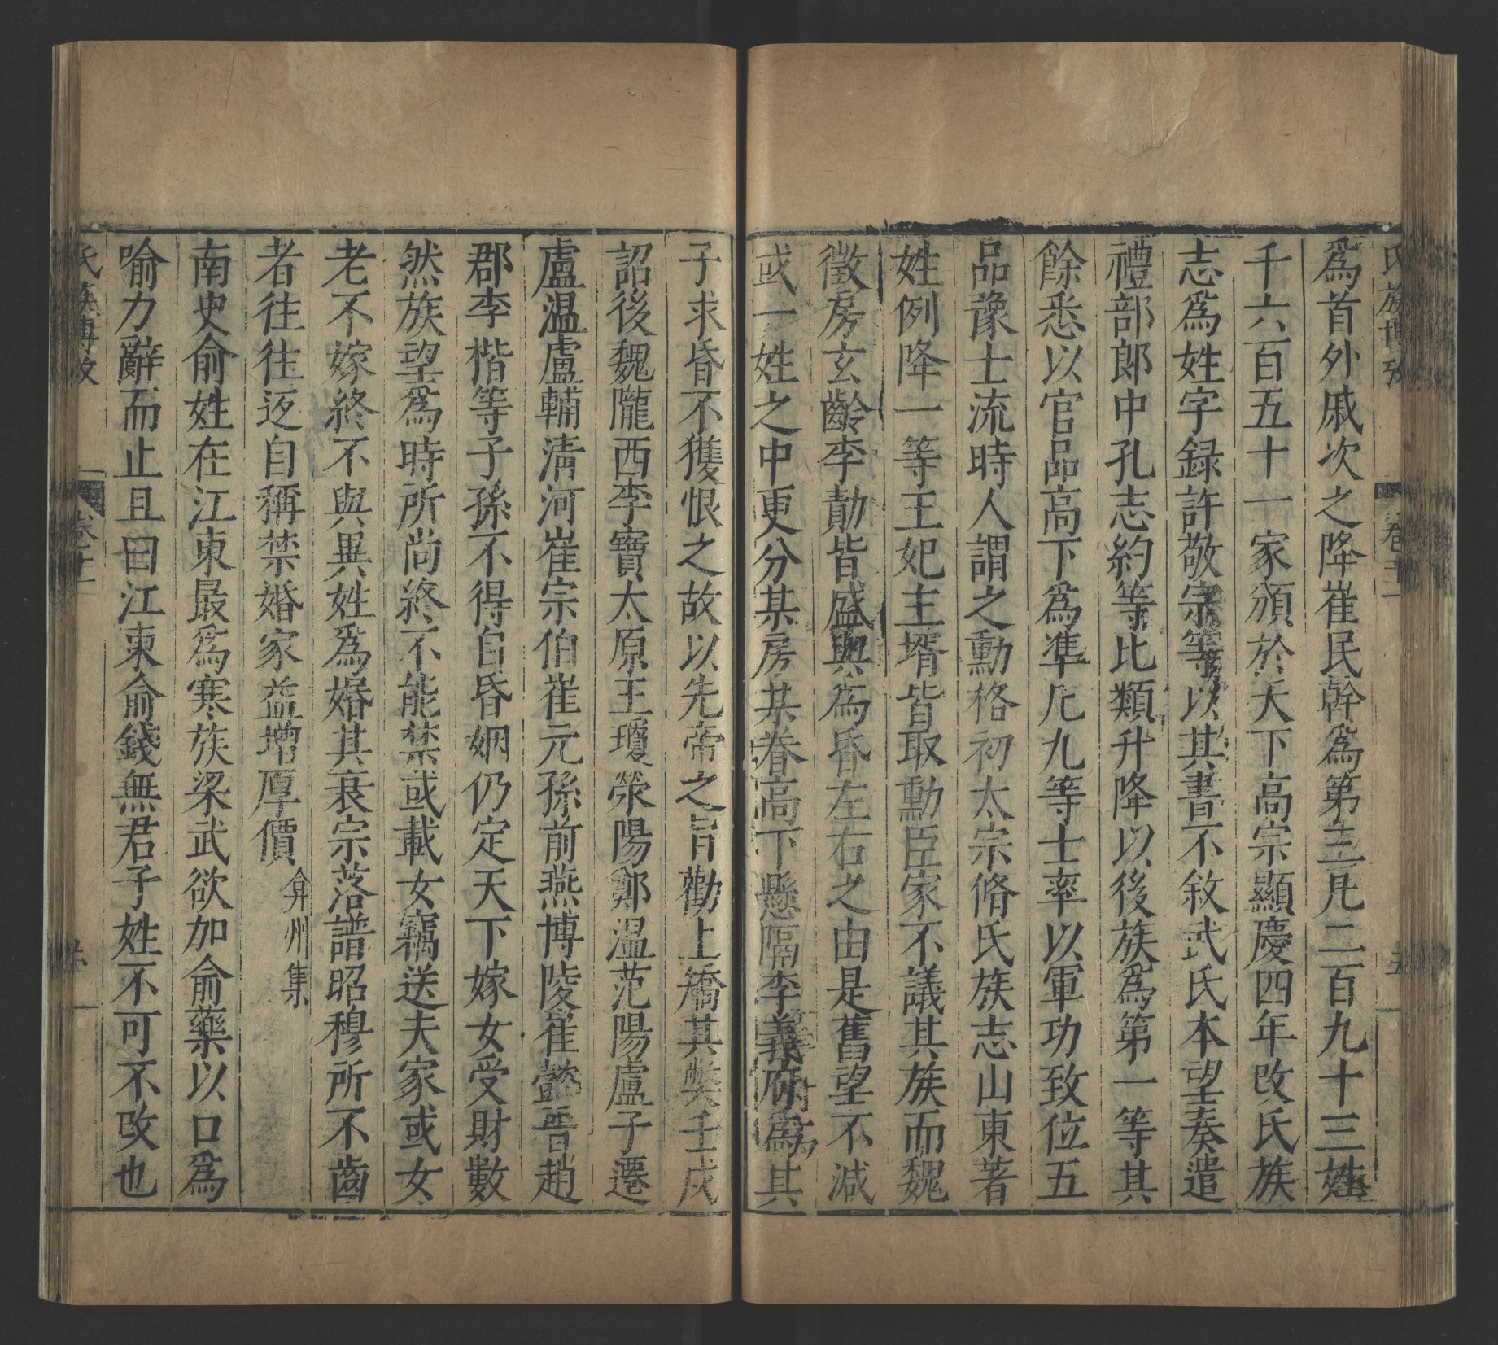 氏族博攷
卷十一
五
爲首外戚次之降崔民幹爲第三凡二百九十三姓
千六百五十一家頒於天下高宗顯慶四年改氏族
志爲姓字録許敬宗等以其書不敘武氏本望奏遣
禮部郎中孔志約等比類升降以後族爲第一等其
餘悉以官品高下爲準凡九等士率以軍功致位五
品豫士流時人謂之勳格初太宗脩氏族志山東著
姓例降一等王妃主壻皆取勳臣家不議其族而魏
徵房玄齡李勣皆盛與爲昏左右之由是舊望不減
或一姓之中更分某房某眷高下懸隔李義府爲其
子求昏不獲恨之故以先帝之旨勸上矯其獘壬戌
詔後魏隴西李寶太原王瓊滎陽鄭温范陽盧子遷
盧温盧輔清河崔宗伯崔元孫前燕博陵崔懿晉趙
郡李楷等子孫不得自昏姻仍定天下嫁女受財數
然族望爲時所尚終不能禁或載女竊送夫家或女
老不嫁終不與異姓爲婚其衰宗落譜昭穆所不齒
者往往返自稱禁婚家益增厚價 弇州集
南史俞姓在江東最爲寒族梁武欲加俞藥以口爲
喻力辭而止且曰江東俞錢無君子姓不可不改也
氏族博攷
卷十一